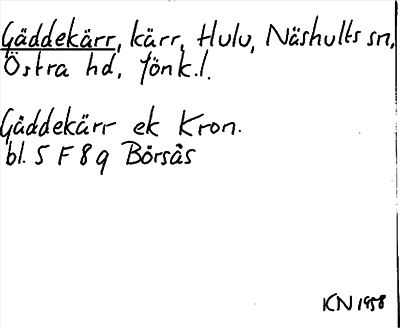 Gäddekärr, kärr, Hulu, Näshults sn,
Östra hd, Jönk.l.
Gäddekärr ek Kron.
bl. 5 F 8 g Börsås
KN 1958